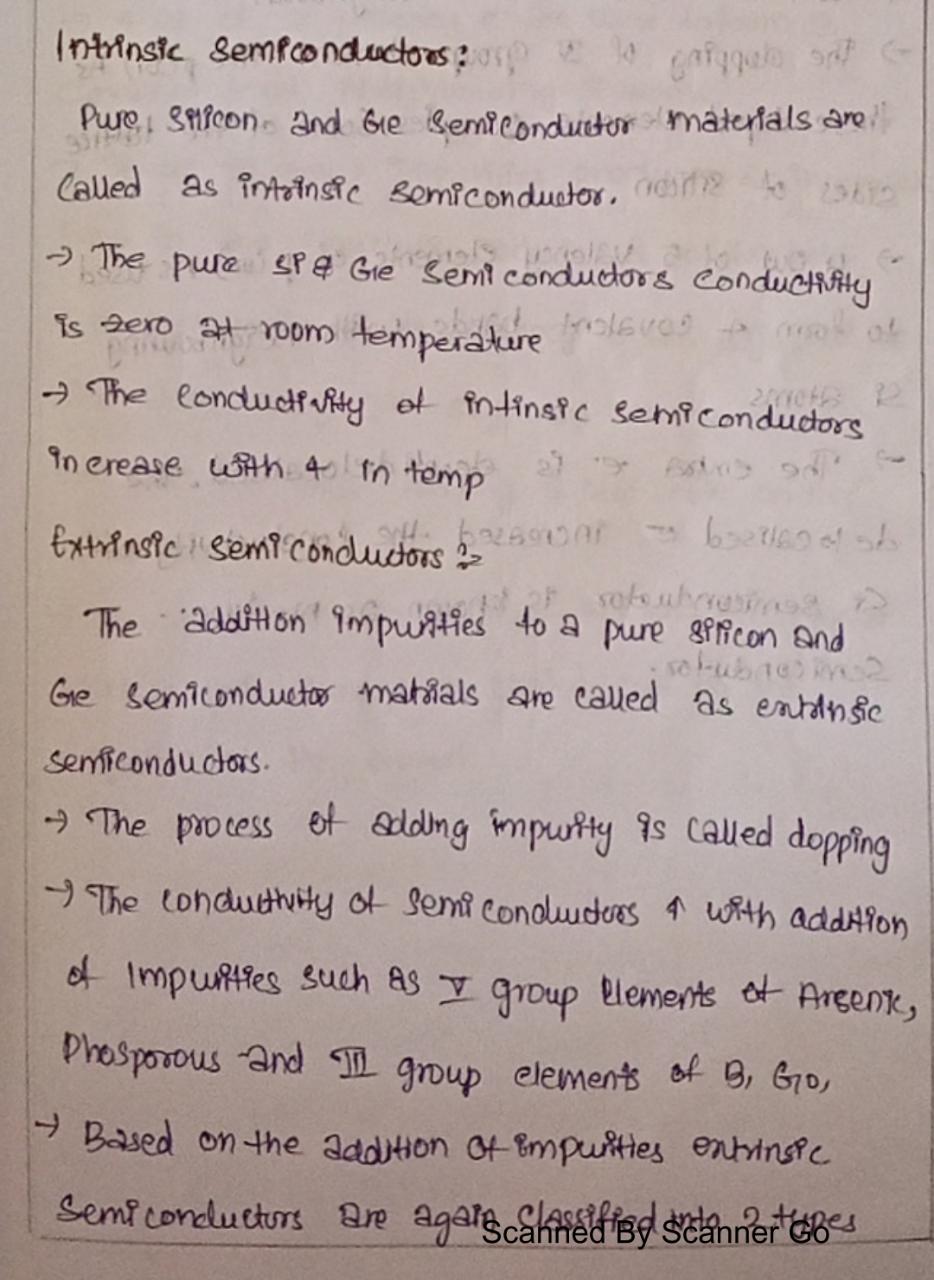 Intrinsic semiconductors:
Pure silicon and Ge semiconductor materials are
called as intrinsic semiconductor.
→ The pure si & Ge semi conductors conductivity
is zero at room temperature
→ The conductivity of intinsic semiconductors
increase with ↑ in temp
Extrinsic semi conductors :-
The addition impurities to a pure silicon and
Ge semiconductor matrials are called as extrinsic
semiconductors.
→ The process of adding impurity is called dopping
→ The conductivity of semi conductors ↑ with addition
of Impurities such as V group elements of Arsenic,
Phosporous and III group elements of B,
→ Based on the addition of impurities extrinsic
semi conductors are again classified into 2 types
Scanned By Scanner Go